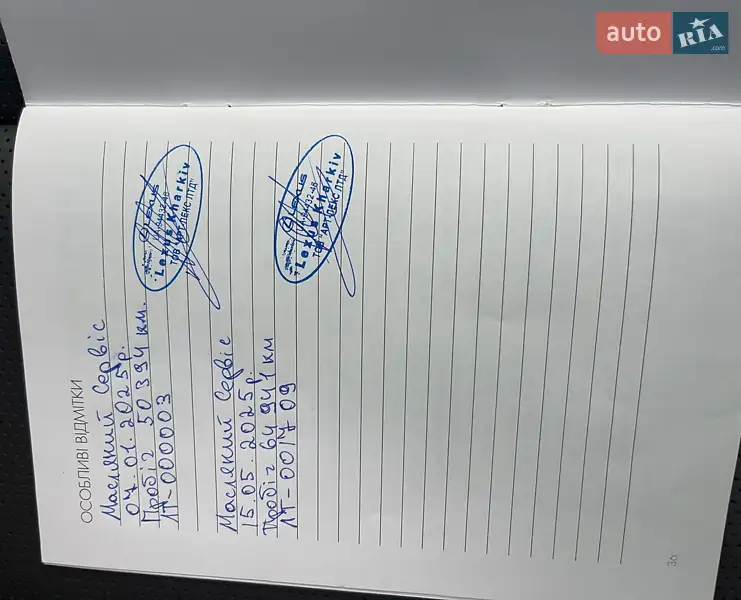 auto RIA .com
ОСОБЛИВІ ВІДМІТКИ
Масляний Сервіс
07.01.2025р.
Пробіг 50394 км.
ЛТ-000003
LEXUS
"Lexus Kharkiv
ТОВ "АРТ ЛЕКС ЛТД"
Масляний Сервіс
15.05.2025р.
Пробіг 64941 км
ЛТ-001709
LEXUS
"Lexus Kharkiv
ТОВ "АРТ ЛЕКС ЛТД"
36